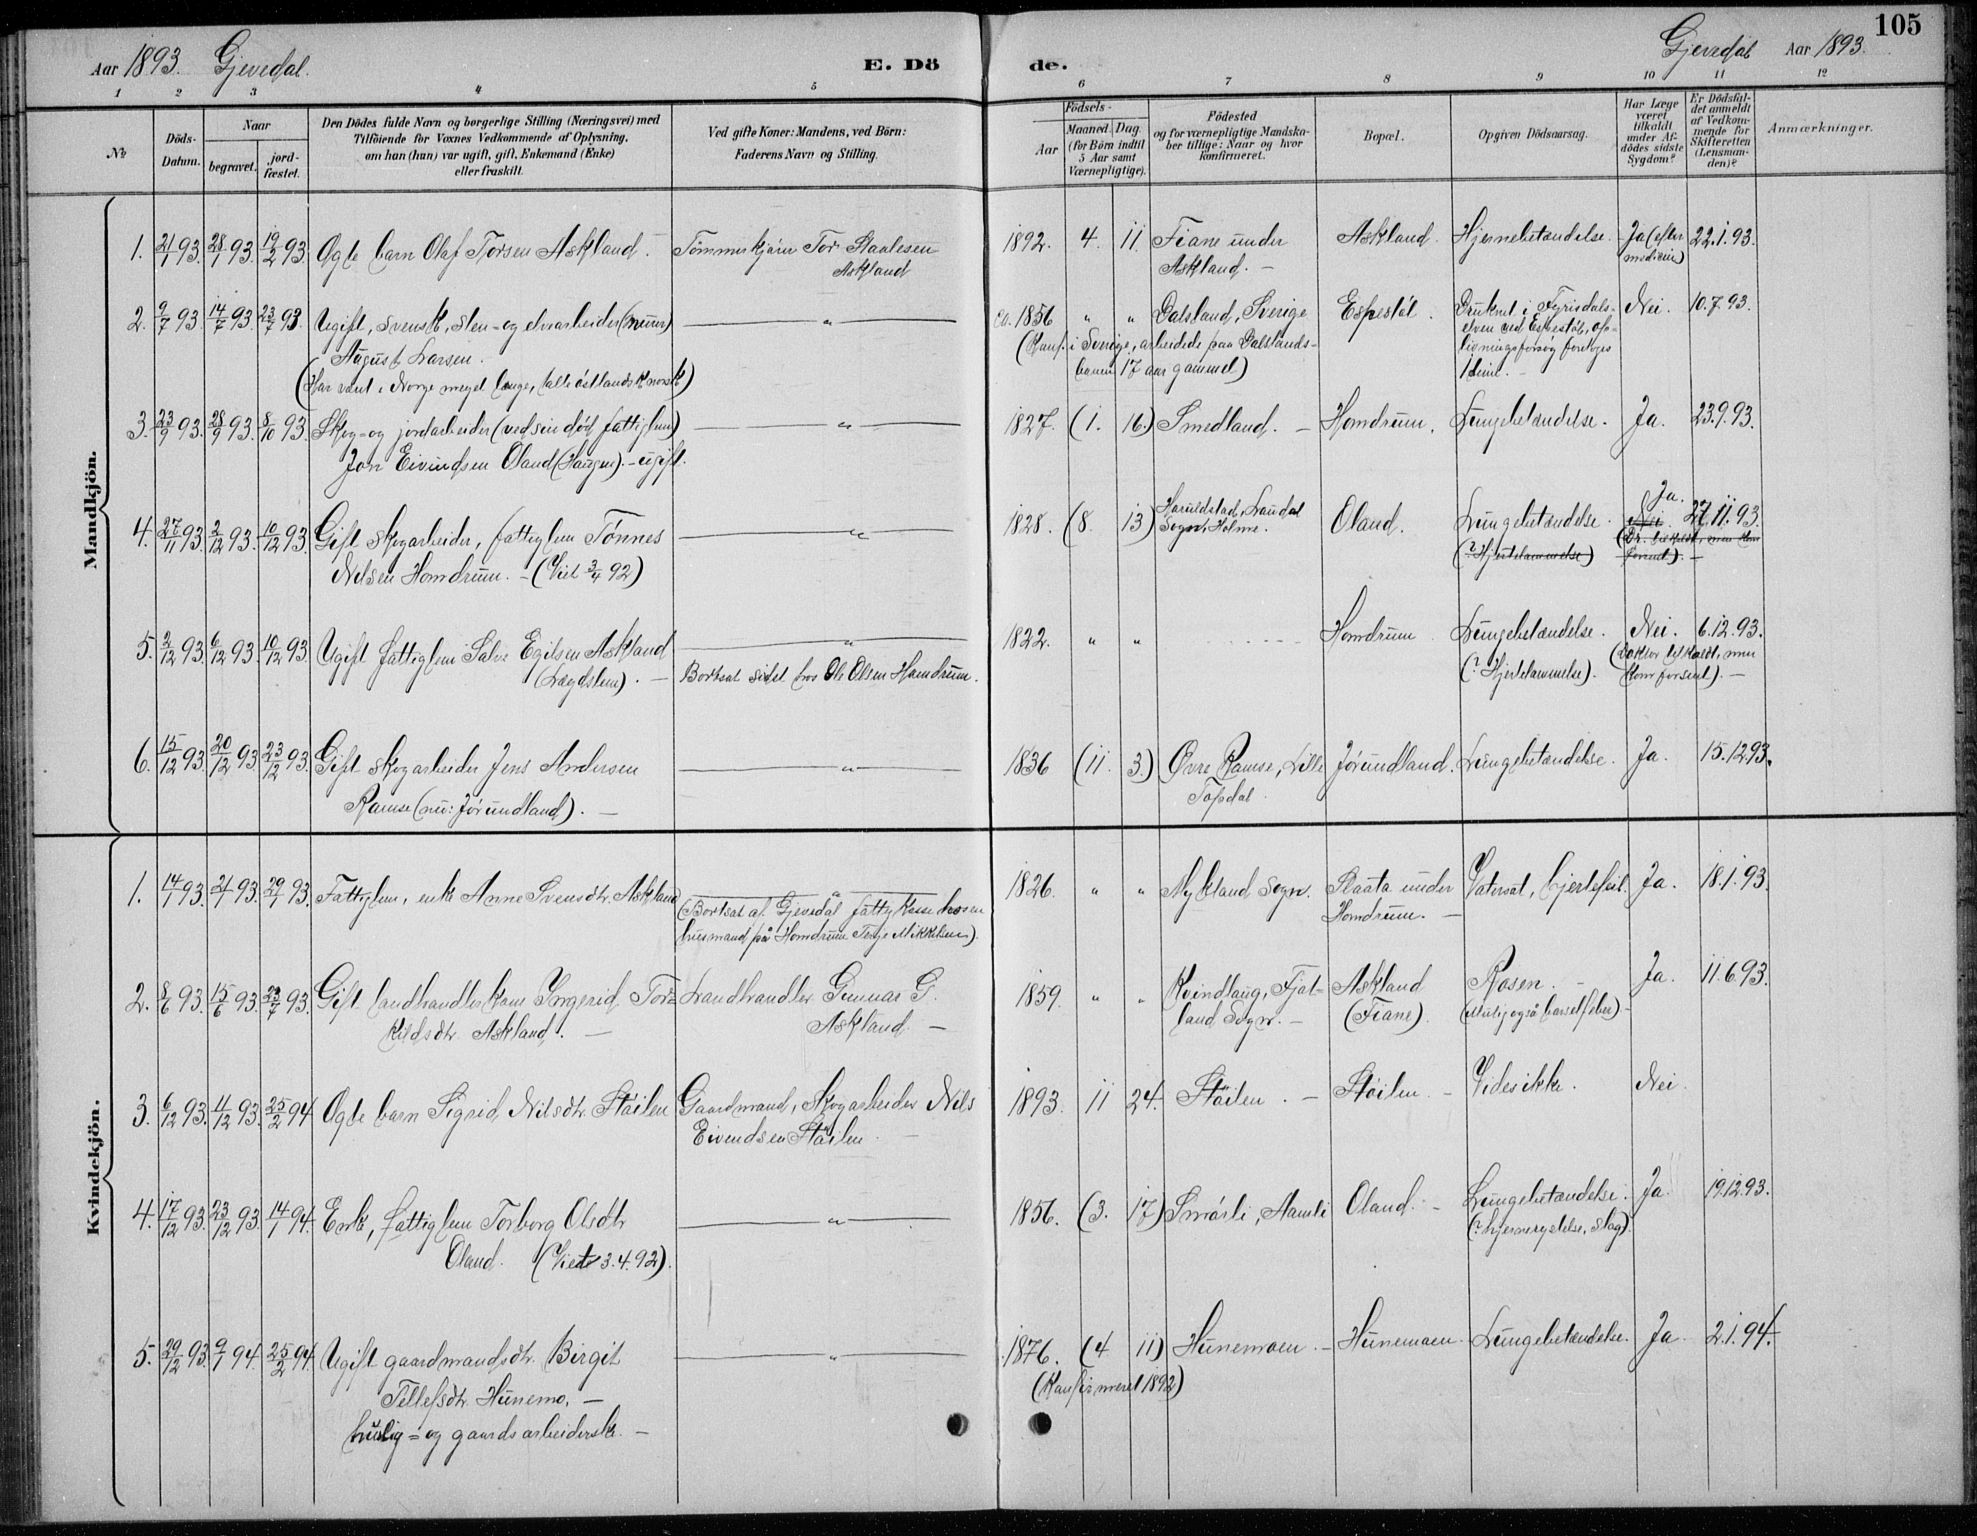 105
Aar 1893. Gjevedal.
E. Dö
de.
Gjevedal Aar 1893.
1 2 3 4 5 6 7 8 9 10 11 12
№
Döds-Datum.
Naar
begravet.
jord-fæstet.
Den Dödes fulde Navn og borgerlige Stilling (Næringsvei) med
Tilföiende for Voxnes Vedkommende af Oplysning,
om han (hun) var ugift, gift, Enkemand (Enke)
eller fraskilt.
Ved gifte Koner: Mandens, ved Börn:
Faderens Navn og Stilling.
Födsels-
Aar
Maaned. Dag
(for Börn indtil
5 Aar samt
Værnepligtige).
Födested
og for værnepligtige Mandska-
ber tillige: Naar og hvor
konfirmeret.
Bopæl.
Opgiven Dödsaarsag.
Har Læge
været
tilkaldt
under Af-
dödes sidste
Sygdom?
Er Dödsfal-
det anmeldt
af Vedkom-
mende for
Skifteretten
(Lensman-
den)?
Anmærkninger.
Mandkjön.
1. 21/1 93. 28/1 93. 19/2 93. Ægte barn Olaf Torsen Askland. Tömmerkjörer Tor Staalesen 1892. 4. 11. Fiane under Askland. Hjernebetændelse. Ja (efter 22.1.93.
Askland
Askland. –
medicin)
2. 9/7 93. 14/7 93. 23/7 93. Ugift, svensk, sten- og elvearbeider (murer) — " — ca. 1856 " " Dalsland, Sverige Espestöl. Druknet i Fyrisdals- Nei. 10.7.93.
August Larsen.
(Konf. i Sverige, arbeidede paa Dalslands-
elven ved Espestöl, op-
(Har vært i Norge meget længe, talte östlandsk norsk)
banen 17 aar gammel)
livningsforsög foretoges
1 time. –
3. 23/9 93. 28/9 93. 8/10 93. Skog- og jordarbeider (ved sin död fattiglem) — " — 1827. (1. 16.) Smedland. – Homdrum. Lungebetændelse. Ja. 23.9.93.
Jon Eivindsen Oland (Haugen). – ugift.
4. 27/11 93. 2/12 93. 10/12 93. Gift skogarbeider, fattiglem Tönnes — " — 1828. (8. 13) Haruldstad, Laudal Oland. Lungebetændelse. Nei. Ja. 27.11.93.
Nilsen Homdrum. – (Viet 3/4 92)
Sogn, Holme.
(? Hjertelammelse)
(Dr. tilkaldt, men kom
forsent). –
5. 2/12 93. 6/12 93. 10/12 93. Ugift fattiglem Salve Egilsen Askland — " — 1822. " " Homdrum Lungebetændelse. Nei. 6.12.93.
(Lægdslem). –
Bortsat sidst hos Ole Olsen Homdrum.
(? Hjertelammelse).
(Doktor tilkaldt, men
kom forsent). –
6. 15/12 93. 20/12 93. 23/12 93. Gift skogarbeider Jens Andersen — " — 1836 (11. 3.) Övre Ramse, Lille Jörundland. Lungebetændelse. Ja. 15.12.93.
Ramse (nu: Jörundland). –
Topdal.
Kvindekjön.
1. 14/1 93. 21/1 93. 29/1 93. Fattiglem, enke Anne Svensdtr. Askland — " — 1826. " " Mykland Sogn. Slaata under Vatersot, hjertefeil. Ja. 18.1.93.
(Bortsat af Gjevedal fattigkasse hos en
Homdrum. –
husmand på Homdrum Terje Mikkelsen).
2. 8/6 93. 15/6 93. 23/7 93. Gift landhandlerkone Ingerid Tor- Landhandler Gunnar G. 1859. " " Kvindlaug, Fjot- Askland Rosen. – Ja. 11.6.93.
kildsdtr. Askland. –
Askland. –
land Sogn. –
(Fiane).
(Mulig også barselfeber). –
3. 6/12 93. 11/12 93. 25/2 94. Ægte barn Sigrid Nilsdtr. Stöilen Gaardmand, skogarbeider Nils 1893. 11 24. Stöilen. – Stöilen. – Vides ikke. Nei.
Eivindsen Stöilen. –
4. 17/12 93. 23/12 93. 14/1 94. Enke, fattiglem Torborg Olsdtr. — " — 1856. (3. 17) Smörli, Aamli Oland. – Lungebetændelse. Ja. 19.12.93.
Oland. (Viet 3.4.92).
(? hjernerystelse, slag).
5. 29/12 93. 9/1 94. 25/2 94. Ugift gaardmandsdtr. Birgit — " — 1876. (4 11) Hunemoen. – Hunemoen Lungebetændelse. Ja. 2.1.94.
Tellefsdtr. Hunemo. –
(Konfirmeret 1892)
huslig- og gaardsarbeiderske. –